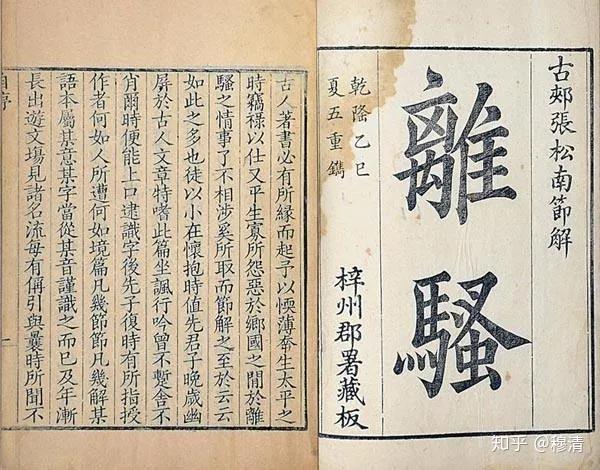 古郟張松南節解
離騷
乾隆乙巳
夏五重鐫
梓州郡署藏板
古人著書必有所緣而起予以愞薄奉生太平之
時竊祿以仕又平生寡所怨惡於鄉國之閒於離
騷之情事了不相涉奚所取而節解之至於云云
如此之多也徒以小在懷抱時值先君子晚歲幽
屏於古人文章特嗜此篇坐諷行吟曾不蹔舍不
肖爾時便能上口逮識字後先子復時有所指授
作者何如人所遭何如境篇凡幾節節凡幾解某
語本屬某意某字當從某音謹識之而已及年漸
長出遊文塲見諸名流每有偁引與曩時所聞不
自序 一
知乎 @穆清